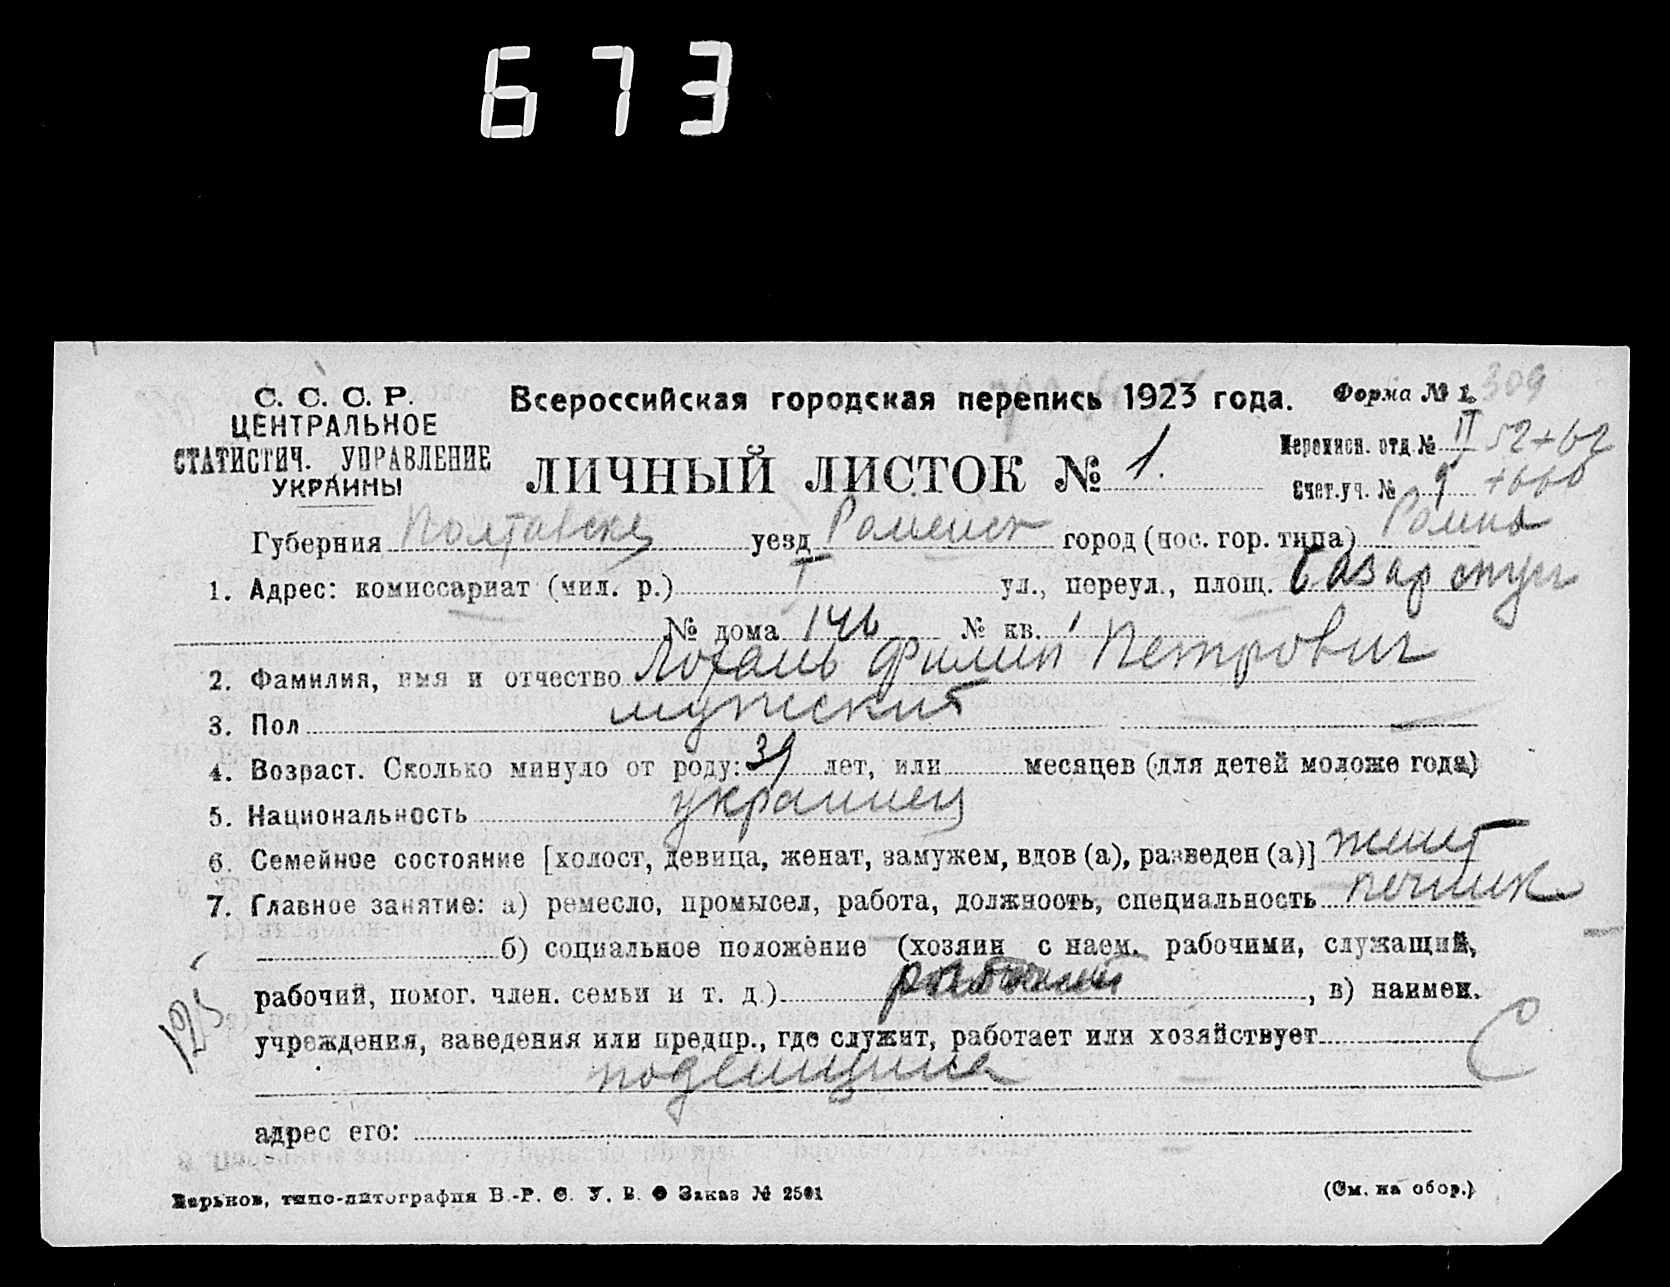 673
С. С. С. Р.
ЦЕНТРАЛЬНОЕ
СТАТИСТИЧ. УПРАВЛЕНИЕ
УКРАИНЫ
Всероссийская городская перепись 1923 года.
Форма № 1.
309
ЛИЧНЫЙ ЛИСТОК № 1.
Переписн. отд. № II 52+62
Счет. уч. № 9 +660
Губерния Полтавск уезд Роменск город (пос. гор. типа) Ромны
1. Адрес: комиссариат (мил. р.) I ул., переул., площ. Базар
№ дома 146 № кв. 1
2. Фамилия, имя и отчество Филип Петрович
3. Пол мужский
4. Возраст. Сколько минуло от роду: 39 лет, или месяцев (для детей моложе года)
5. Национальность украинец
6. Семейное состояние [холост, девица, женат, замужем, вдов (а), разведен (а)] женат
7. Главное занятие: а) ремесло, промысел, работа, должность, специальность печник
б) социальное положение (хозяин с наем. рабочими, служащий,
рабочий, помог. член. семьи и т. д.) рабочий, в) наимен.
учреждения, заведения или предпр., где служит, работает или хозяйствует
поденщина
С
125
адрес его:
Харьков, типо-литография В.-Р. С. У. В. Заказ № 2501
(См. на обор.)